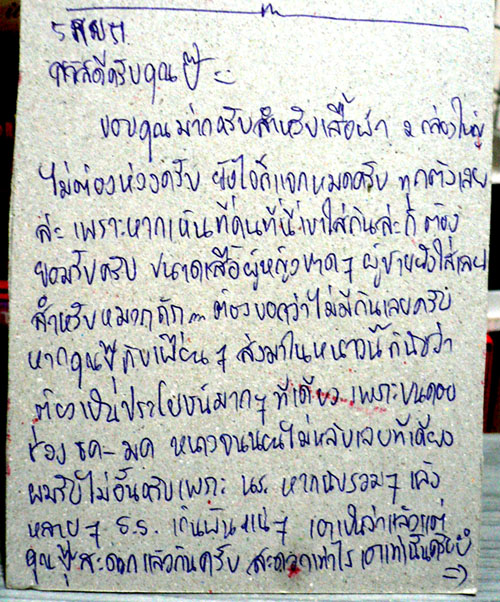 5 กย 51
สวัสดีครับคุณปู =
ขอบคุณมากครับสำหรับเสื้อผ้า 2 กล่องใหญ่
ไม่ต้องห่วงครับ ยังไงก็แจกหมดครับ ทุกตัวเลย
ล่ะ เพราะหากเห็นที่คนที่นี่เขาใส่กันล่ะก็ ต้อง
ยอมรับครับ ขนาดเสื้อผู้หญิงขาด ๆ ผู้ชายยังใส่เลย
สำหรับหมวกถัก ต้องบอกว่าไม่มีกันเลยครับ
หากคุณปูกับเพื่อน ๆ ส่งมาในหนาวนี้ก็นับว่า
ต้องเป็นประโยชน์มาก ๆ ทีเดียว เพราะบนดอย
ช่วง ธค - มค หนาวจนนอนไม่หลับเลยทีเดียว
ผมรับไม่อั้นครับเพราะ นร. หากนับรวม ๆ แล้ว
หลาย ๆ ร.ร. เกินพันแน่ ๆ เอาเป็นว่าแล้วแต่
คุณปูสะดวกแล้วกันครับ สะดวกเท่าไร เอาเท่านั้นครับ
=)